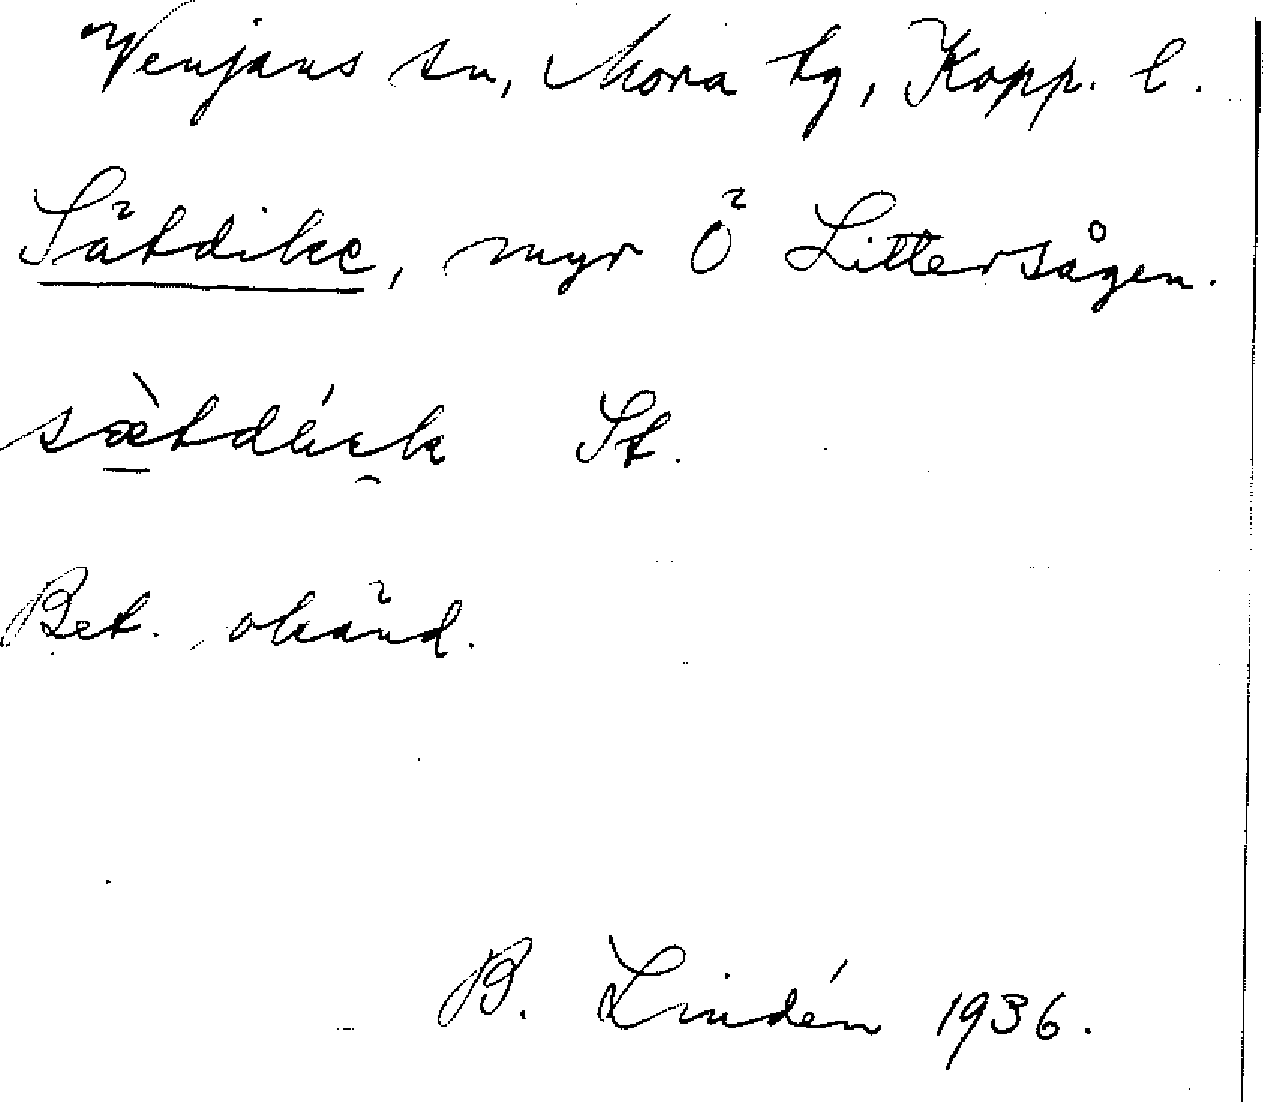 Venjans sn, Mora tg, Kopp. l.
Sätdike, myr Ö Littersågen.
St.
Bet. okänd.
B. Lindén 1936.